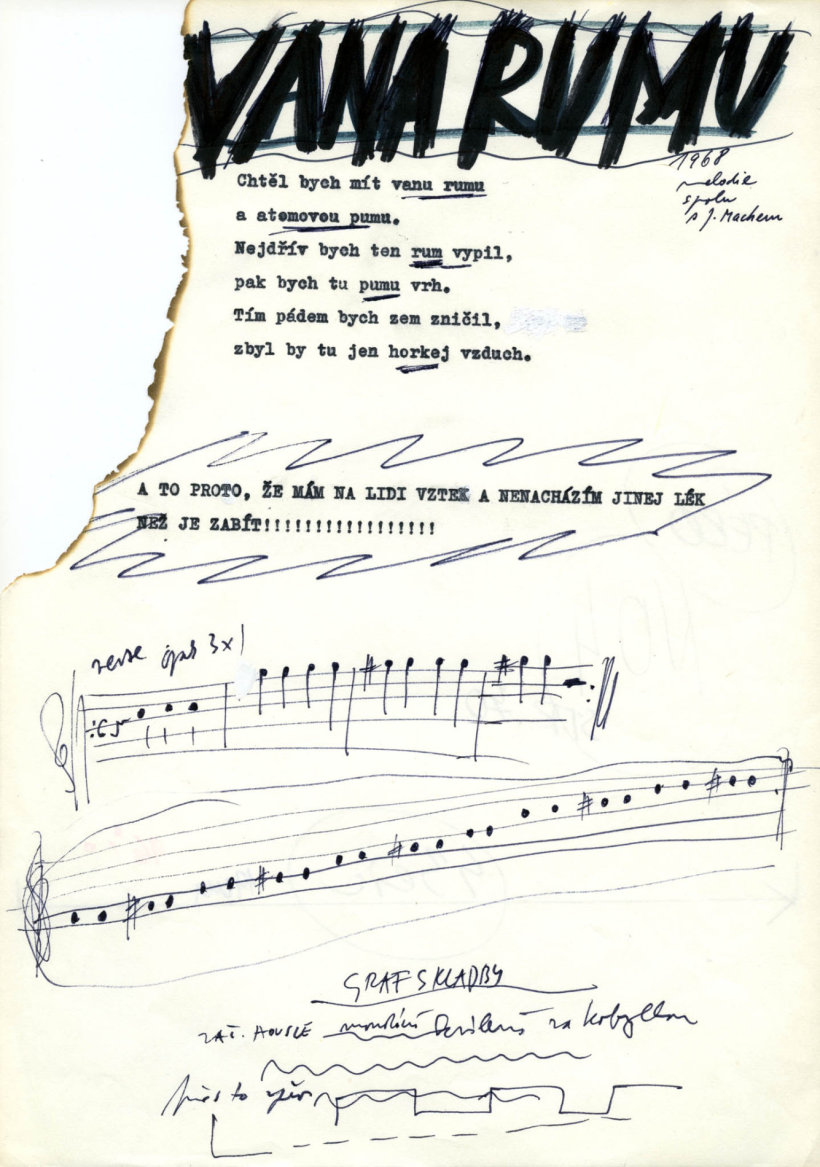 VANA RUMU
1968
melodie
spolu
s J. Machem
Chtěl bych mít vanu rumu
a atomovou pumu.
Nejdřív bych ten rum vypil,
pak bych tu pumu vrh.
Tím pádem bych zem zničil,
zbyl by tu jen horkej vzduch.
A TO PROTO, ŽE MÁM NA LIDI VZTEK A NENACHÁZÍM JINEJ LÉK
NEŽ JE ZABÍT!!!!!!!!!!!!!!!!!!
3x
GRAF SKLADBY
ZAČ. HOUSLE za kobylkou
přes to zpěv